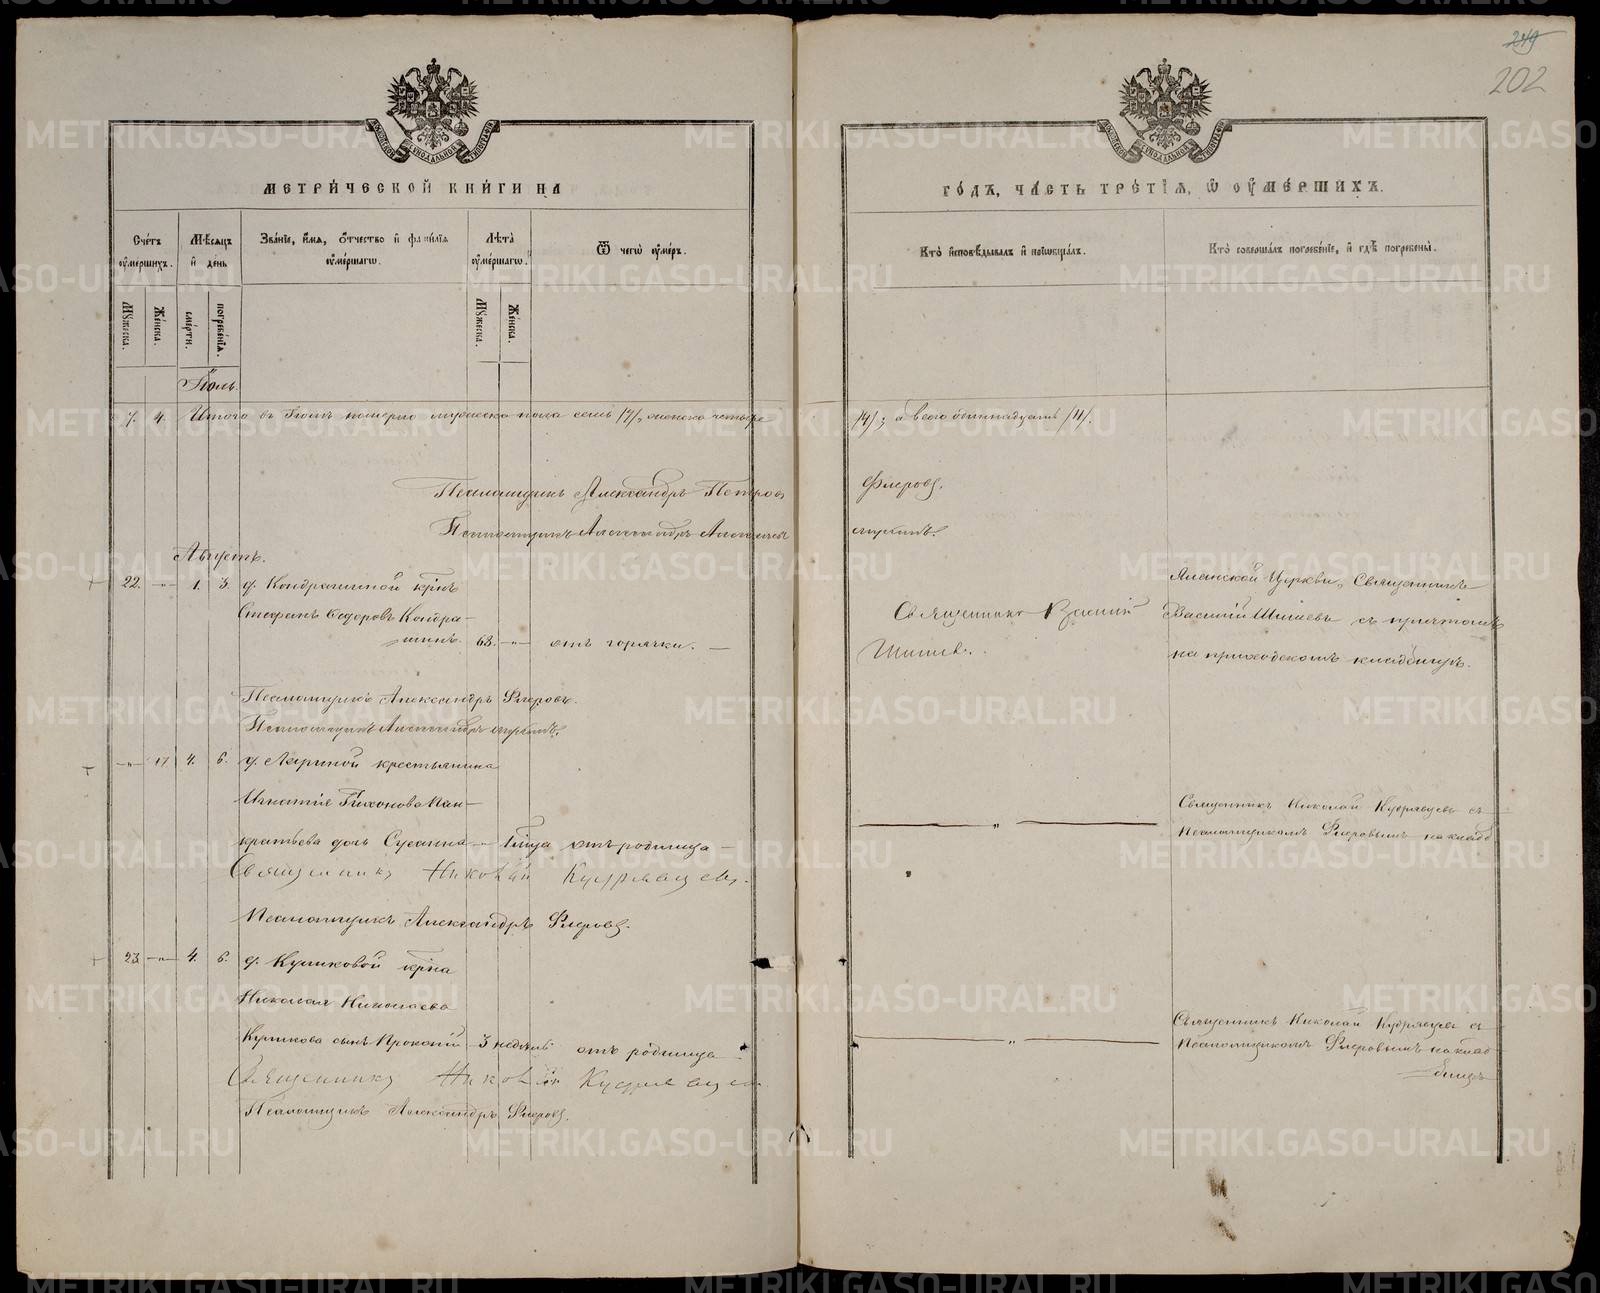 249
202
МЕТРИ́ЧЕСКОЙ КНИ́ГИ НА
ГО́ДЪ, ЧАСТЬ ТРЕ́ТІѦ, Ѿ ОУМЕ́РШИХЪ.
Сче́тъ оумершихъ.
Мѣсяцъ и день
Зва́ніе, и́мя, о́тчество и фами́лія оуме́ршагѡ.
Лѣта оуме́ршагѡ.
Ѿ чегѡ оу́меръ.
Кто исповѣдывалъ и пріобщалъ.
Кто совершалъ погребе́ніе, и гдѣ погребены̀.
Мꙋжеска.
Же́нска.
сме́рти.
погребе́нія.
Мꙋжеска.
Же́нска.
Іюль.
7. 4. Итого въ Іюлѣ померло мужеска пола семь /7/, женска четыре
/4/; а всего одиннадцать /11/.
Псаломщикъ Александръ Петровъ
Флеровъ.
Псаломщикъ Александръ
Августъ.
22. — 1. 3. д. Кондрашиной кр̃нъ
Стефанъ Ѳедоровъ Кондра-
шинъ. 63. — отъ горячки. —
Священникъ Василій
Шишевъ.
Церкви, Священникъ
Василій Шишевъ съ причтомъ
на приходскомъ кладбищѣ.
Псаломщикъ Александръ Флеровъ.
Псаломщикъ Александръ
— 17 4. 6. д. Лариной крестьянина
Игнатія Тихонова Пан-
кратьева дочь Сусанна отъ родимца —
Священникъ Николай Кудрявцевъ съ
Псаломщикомъ Флеровымъ на кладб
Священникъ Николай Кудрявцевъ.
Псаломщикъ Александръ Флеровъ.
23. — 4. 6. д. Куликовой кр̃на
Николая Николаева
Куликова сынъ Прокопій 3 недѣли отъ родимца
Священникъ Николай Кудрявцевъ съ
Псаломщикомъ Флеровымъ на клад-
бищѣ
Священникъ Николай Кудрявцевъ.
Псаломщикъ Александръ Флеровъ.
METRIKI.GASO-URAL.RU